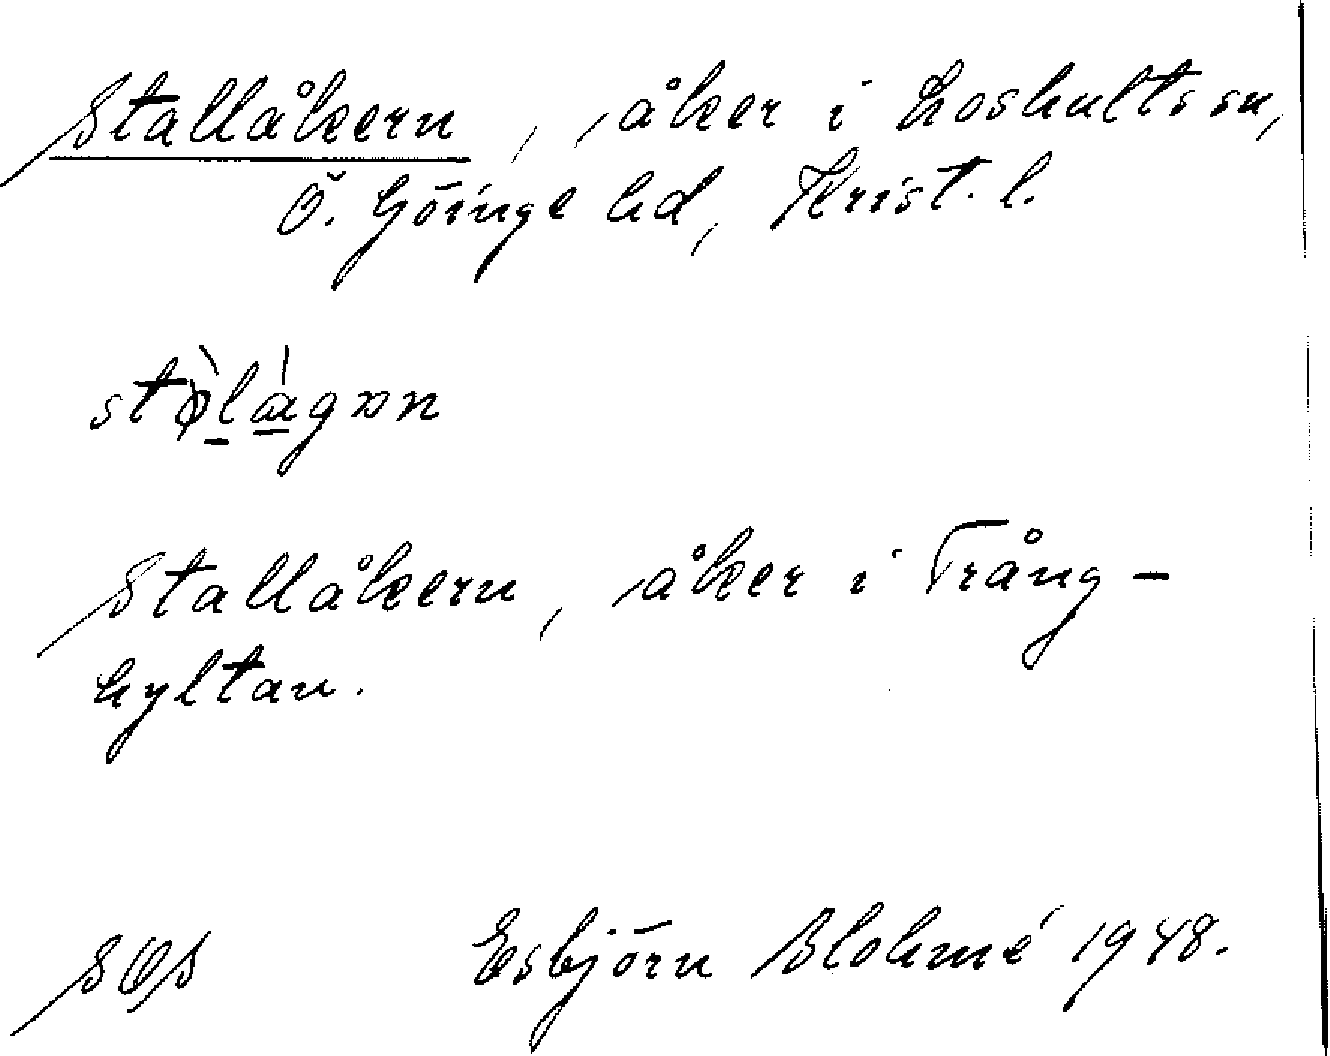 Stallåkern, åker i Loshults sn,
Ö. Göinge hd, Krist. l.
Stallåkern, åker i Trång-
hyltan.
SOS Esbjörn Blohmé 1948.